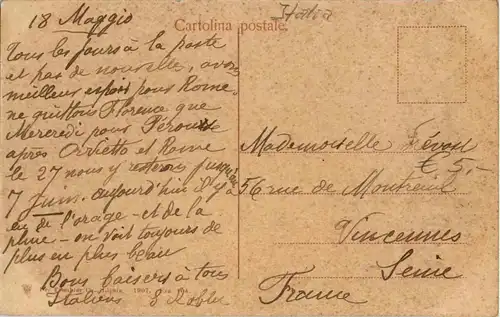 18 Maggio
Cartolina postale
Italia
Tous les jours à la poste
et pas de nouvelle, avons
meilleur espoir pour Rome.
ne quittons Florence que
Mercredi pour Pérouse
après Orvietto et Rome
le 27 nous y resterons jusqu'au
7 juin. aujourd'hui il y a
eu de l'orage - et de la
pluie - on voit toujours de
plus en plus beau
Bons baisers à tous
Italiens
Mademoiselle Prévost
€ 5,-
56 rue de Montreuil
Vincennes
Seine
France